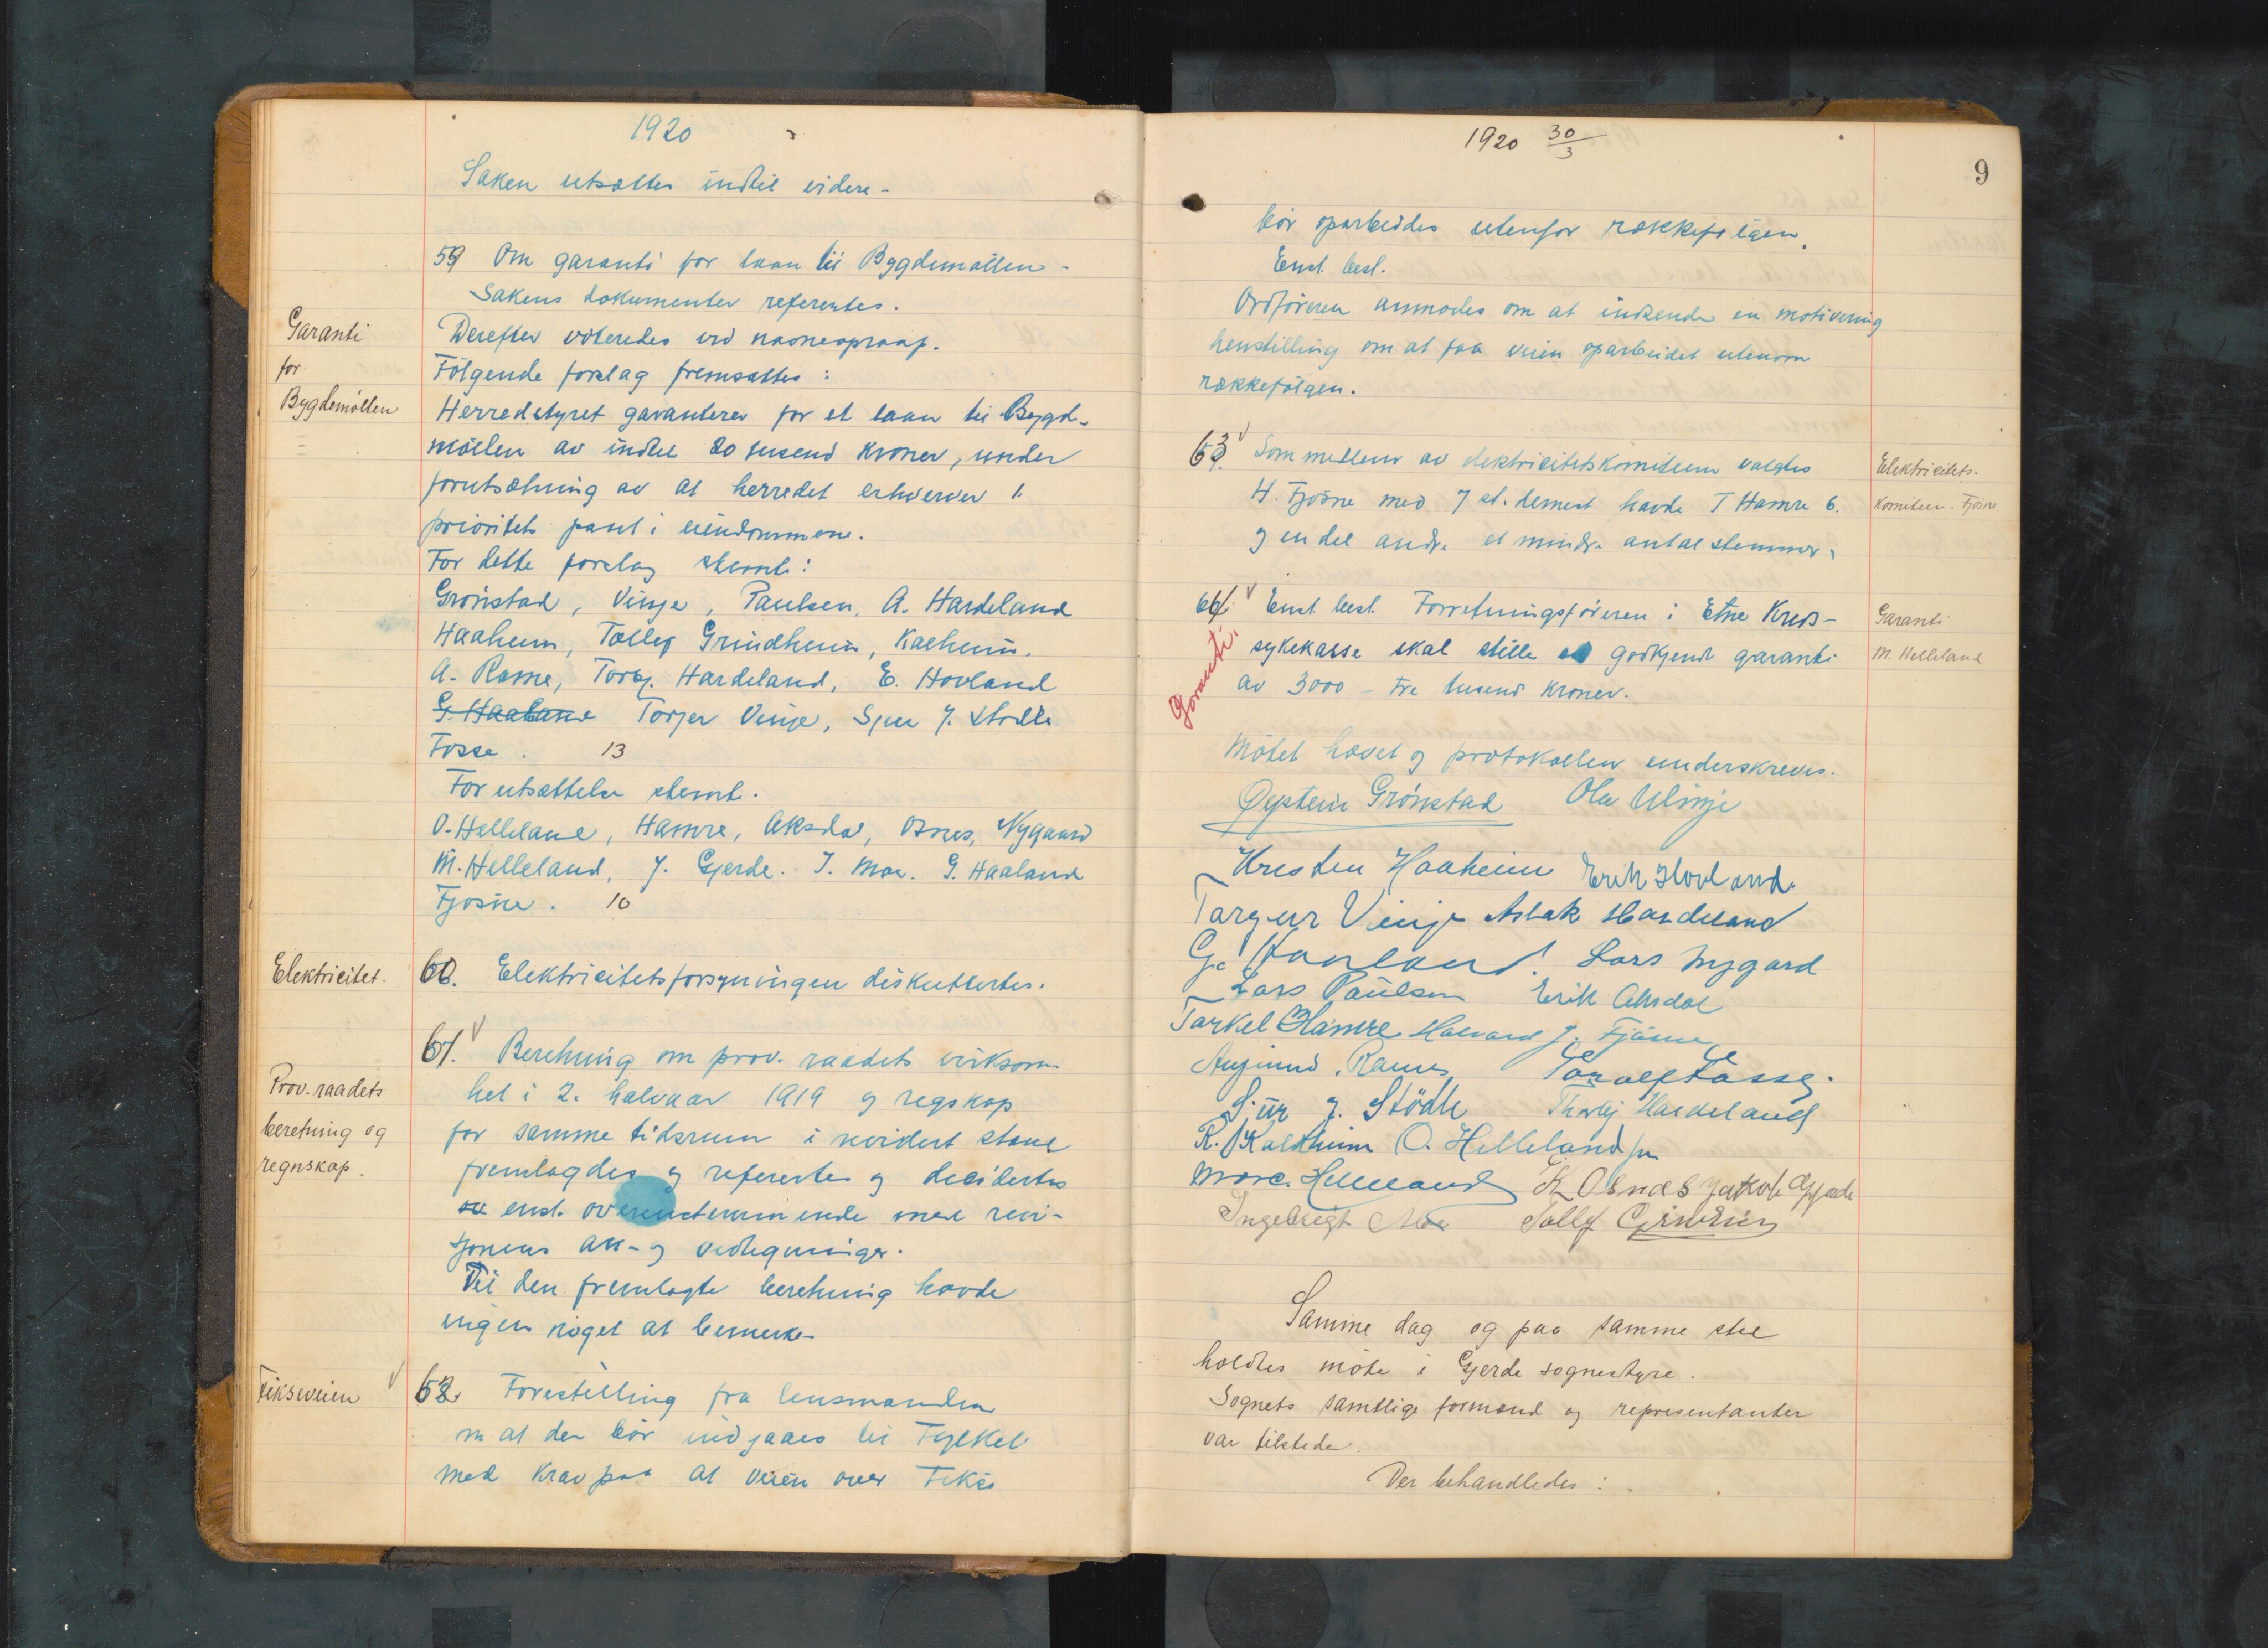 1920
Saken utsættes indtil videre -
59 Om garanti for laan til Bygdemøllen -
Sakens dokumenter referertes.
Garanti
for
Bygdemøllen
Derefter voteredes ved navneopraap.
Følgende forslag fremsattes :
Herredstyret garanterer for et laan til Bygd-
møllen av indtil 20 tusend kroner, under
forutsætning av at herredet erhverver 1.
prioritets pant i eiendommene.
For dette forslag stemte :
Grønstad, Vinje, Paulsen, A. Hardeland
Haaheim, Tollef Grindheim, Kaldheim.
A. Rame, Torbj. Hardeland, E. Hovland
G. Haaland Torjer Vinje, Sjur J. Stødle
Fosse . 13
For utsættelse stemte.
O. Helleland, Hamre, Aksdal, Osnes, Nygaard
M. Helleland, J. Gjerde. I. Moe. G. Haaland
Fjøsne . 10
Elektricitet.
60. Elektricitetsforsyningen diskuttertes.
Prov. raadets
beretning og
regnskap.
61. Beretning om prov. raadets virksom-
het i 2. halvaar 1919 og regskap
for samme tidsrum i revidert stand
fremlagdes og referertes og decidertes
enst. overenstemmende med revi-
sjonens an- og vedtegninger.
Til den fremlagte beretning havde
ingen noget at bemerke-
Fikseveien
62. Forestilling fra lensmanden
om at der bør indgaaes til Fylket
med krav paa at veien over Fikse
1920 30/3
9
bør oparbeides utenfor rækkefølgen.
Enst. besl.
Ordføreren anmodes om at indsende en motivering
henstilling om at faa veien oparbeidet utenom
rækkefølgen.
63. Som medlem av elektricitetskomiteen valgtes
H. Fjøsne med 7 st. dernest havde T Hamre 6.
og en del andre et mindre antal stemmer.
Elektricitets-
komiteen. Fjøsne
64. Enst. besl. Forretningsføreren i Etne Kreds-
sykekasse skal stille godkjendt garanti
av 3000 - tre tusend kroner.
Garanti
M. Helleland
Garanti.
Møtet hævet og protokollen underskreves.
Øystein Grønstad Ola Vinje
Kristen Haaheim Erik Hovland.
Targeir Vinje Aslak Hardeland
G. Haaland. Lars Nygard
Lars Paulsen Erik Aksdal
Tarkel Hamre Halvard J. Fjøsne
Augmund. Rame Toralf Fosse.
Sjur J. Stødle Thorbj Hardeland
R. Kaldheim O. Helleland jun
Marc. Helleland K Osnes Jakob Gjerde
Ingebrigt Moe Tollef Grindheim
Samme dag og paa samme sted
holdtes møte i Gjerde sognestyre.
Sognets samtlige formænd og representanter
var tilstede.
Der behandledes :